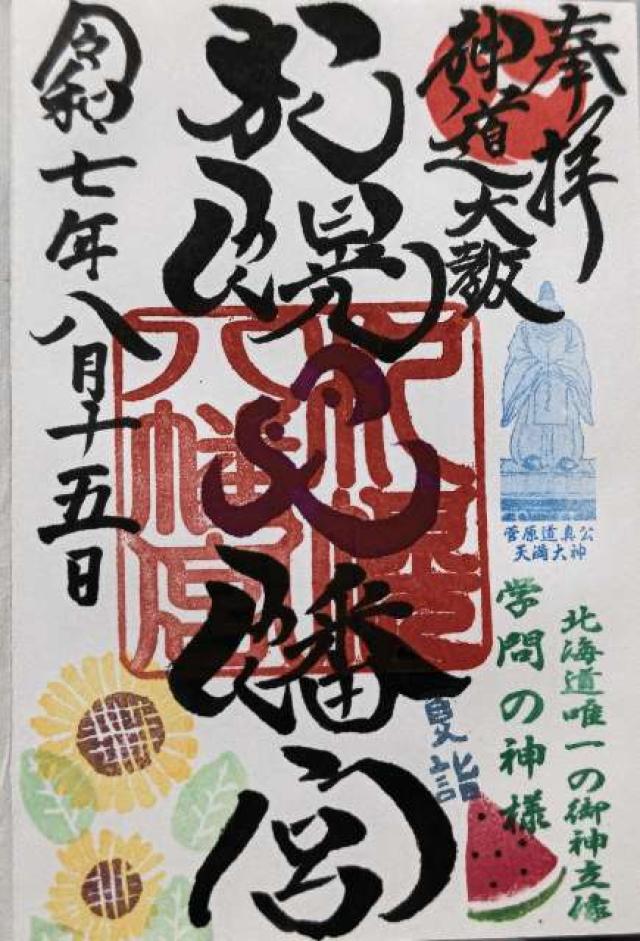 奉拝
神道大教
札幌八幡宮
札幌
八幡宮
令和七年八月十五日
菅原道真公
天満大神
北海道唯一の御神立像
学問の神様
夏詣